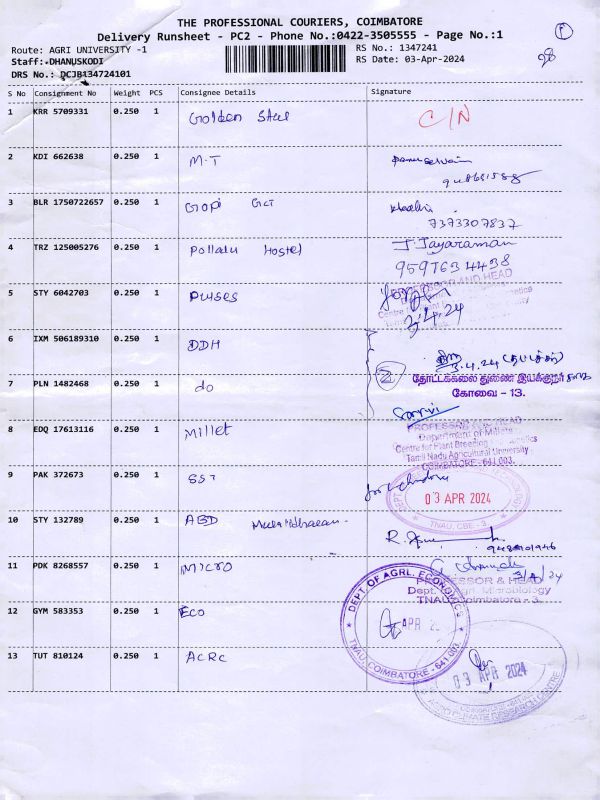 THE PROFESSIONAL COURIERS, COIMBATORE
Delivery Runsheet - PC2 - Phone No.:0422-3505555 - Page No.:1
Route: AGRI UNIVERSITY -1
RS No.: 1347241
Staff: DHANUSKODI
RS Date: 03-Apr-2024
DRS No.: DCJB134724101
S No Consignment No Weight PCS Consignee Details Signature
1 KRR 5709331 0.250 1 Golden Steel C/N
2 KDI 662638 0.250 1 M.T
3 BLR 1750722657 0.250 1 Gopi GCT
7373307837
4 TRZ 125005276 0.250 1 Pollatu Hostel J. Jayaraman
9597634438
PROFESSOR AND HEAD
5 STY 6042703 0.250 1 Pulses
3.4.24
6 IXM 506189310 0.250 1 DDH
3.4.24
2 தோட்டக்கலை துணை இயக்குநர்
கோவை - 13.
7 PLN 1482468 0.250 1 do
8 EDQ 17613116 0.250 1 Millet
PROFESSOR AND HEAD
Department of Millets
Centre for Plant Breeding and Genetics
Tamil Nadu Agricultural University
COIMBATORE - 641 003.
9 PAK 372673 0.250 1 SST
03 APR 2024
TNAU, CBE - 3.
10 STY 132789 0.250 1 ABD
11 PDK 8268557 0.250 1 MICRO
PROFESSOR & HEAD
Dept. of Agri. Microbiology
TNAU, Coimbatore - 3.
12 GYM 583353 0.250 1 Eco
DEPT. OF AGRL. ECONOMICS
APR
TNAU, COIMBATORE - 641 003.
13 TUT 810124 0.250 1 ACRC
03 APR 2024
AGRO CLIMATE RESEARCH CENTRE